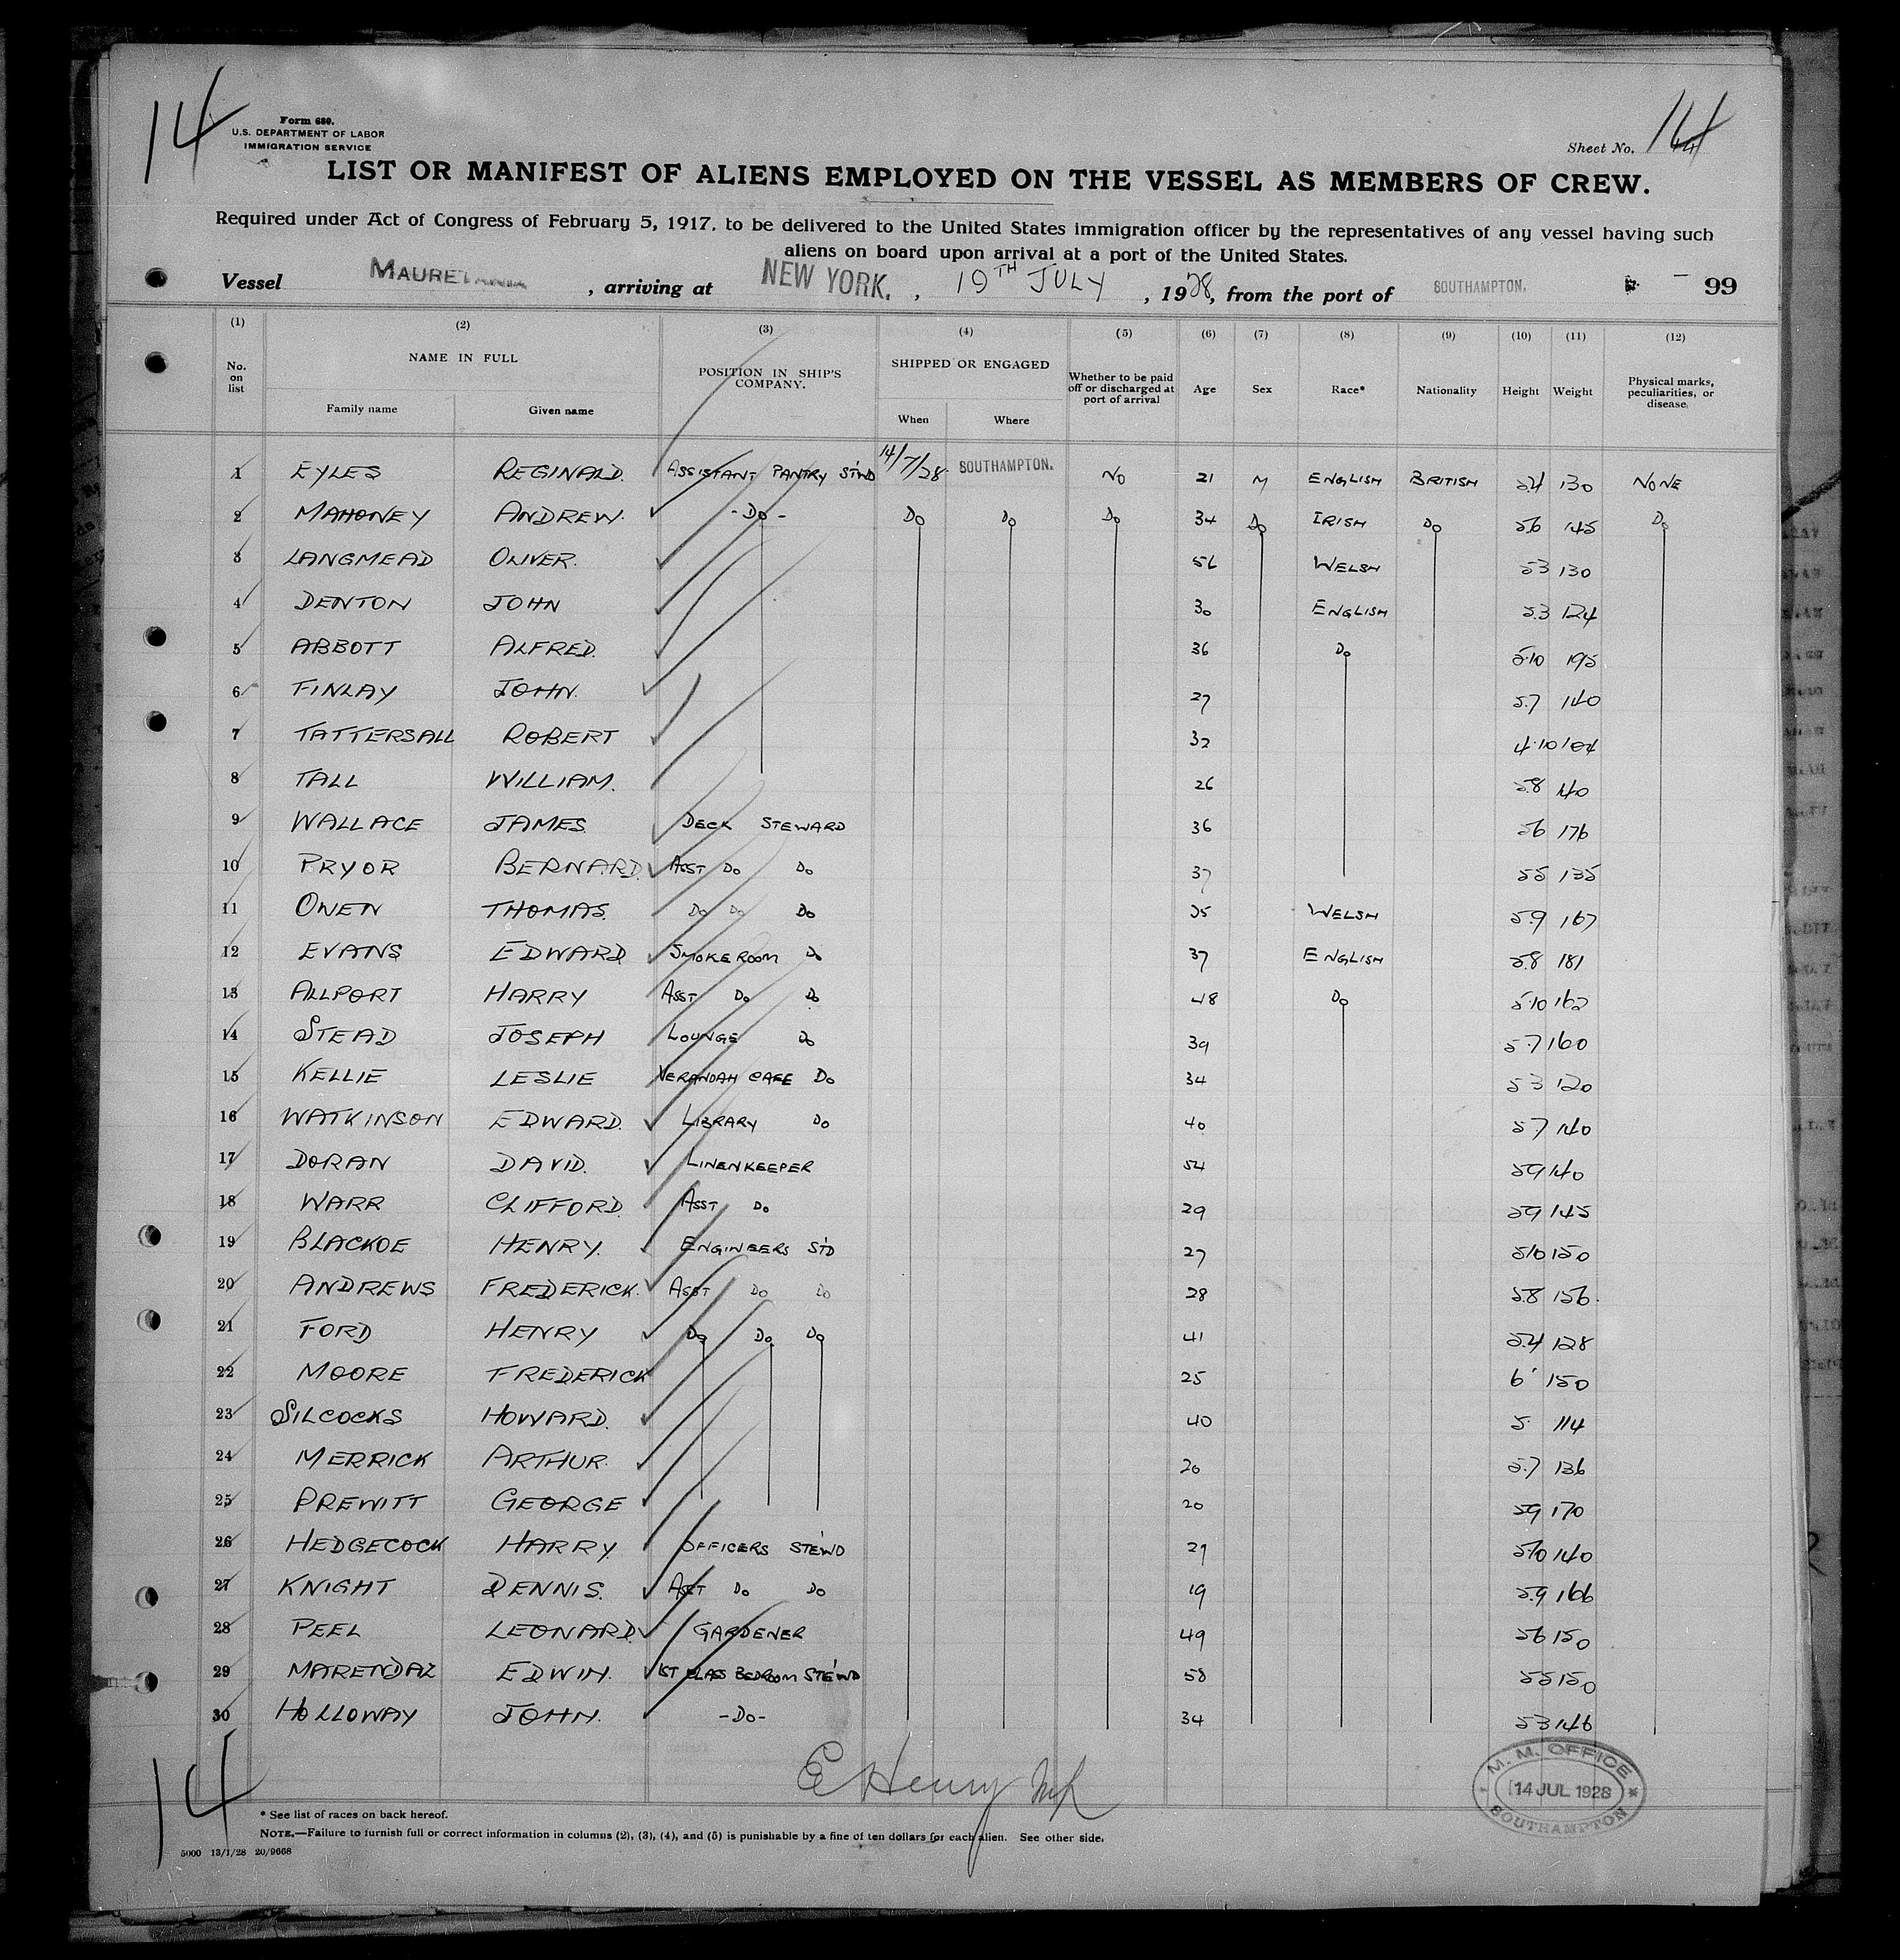 14
Form 680.
U.S. DEPARTMENT OF LABOR
IMMIGRATION SERVICE
Sheet No. 14
LIST OR MANIFEST OF ALIENS EMPLOYED ON THE VESSEL AS MEMBERS OF CREW.
Required under Act of Congress of February 5, 1917, to be delivered to the United States immigration officer by the representatives of any vessel having such
aliens on board upon arrival at a port of the United States.
Vessel MAURETANIA, arriving at NEW YORK., 19TH JULY, 1928, from the port of SOUTHAMPTON. 99
(1) (2) (3) (4) (5) (6) (7) (8) (9) (10) (11) (12)
No. on list NAME IN FULL POSITION IN SHIP'S COMPANY. SHIPPED OR ENGAGED Whether to be paid off or discharged at port of arrival Age Sex Race* Nationality Height Weight Physical marks, peculiarities, or disease.
Family name Given name When Where
1 EYLES REGINALD. ASSISTANT PANTRY ST'WD 14/7/28. SOUTHAMPTON. NO 21 M ENGLISH BRITISH 5.4 130 NONE
2 MAHONEY ANDREW. -DO- DO DO DO 34 DO IRISH DO 5.6 145 DO
3 LANGMEAD OLIVER. 56 WELSH 5.3 130
4 DENTON JOHN 30 ENGLISH 5.3 124
5 ABBOTT ALFRED. 36 DO 5.10 195
6 FINLAY JOHN. 27 5.7 140
7 TATTERSALL ROBERT 32 4.10 104
8 TALL WILLIAM. 26 5.8 140
9 WALLACE JAMES DECK STEWARD 36 5.6 176
10 PRYOR BERNARD. ASST DO DO 37 5.5 135
11 OWEN THOMAS. DO DO DO 35 WELSH 5.9 167
12 EVANS EDWARD SMOKEROOM DO 37 ENGLISH 5.8 181
13 ALLPORT HARRY ASST DO DO 48 DO 5.10 162
14 STEAD JOSEPH LOUNGE DO 39 5.7 160
15 KELLIE LESLIE VERANDAH CAFE DO 34 5.3 120
16 WATKINSON EDWARD. LIBRARY DO 40 5.7 140
17 DORAN DAVID. LINENKEEPER 54 5.9 140
18 WARR CLIFFORD. ASST DO 29 5.9 145
19 BLACKOE HENRY. ENGINEERS ST'D 27 5.10 150
20 ANDREWS FREDERICK. ASST DO DO 28 5.8 156.
21 FORD HENRY DO DO DO 41 5.4 128
22 MOORE FREDERICK 25 6' 150
23 SILCOCKS HOWARD. 40 5. 114
24 MERRICK ARTHUR. 20 5.7 136
25 PREWITT GEORGE 20 5.9 170
26 HEDGECOCK HARRY OFFICERS STEWD 29 5.10 140
27 KNIGHT DENNIS. ASST DO DO 19 5.9 166
28 PEEL LEONARD. GARDENER 49 5.6 150
29 MARENDAZ EDWIN. 1ST CLASS BEDROOM STEWD 58 5.5 150
30 HOLLOWAY JOHN. -DO- 34 5.3 146
E Henry
M. M. OFFICE
14 JUL 1928
SOUTHAMPTON
14
* See list of races on back hereof.
NOTE.—Failure to furnish full or correct information in columns (2), (3), (4), and (5) is punishable by a fine of ten dollars for each alien. See other side.
5000 13/1/28 20/9668